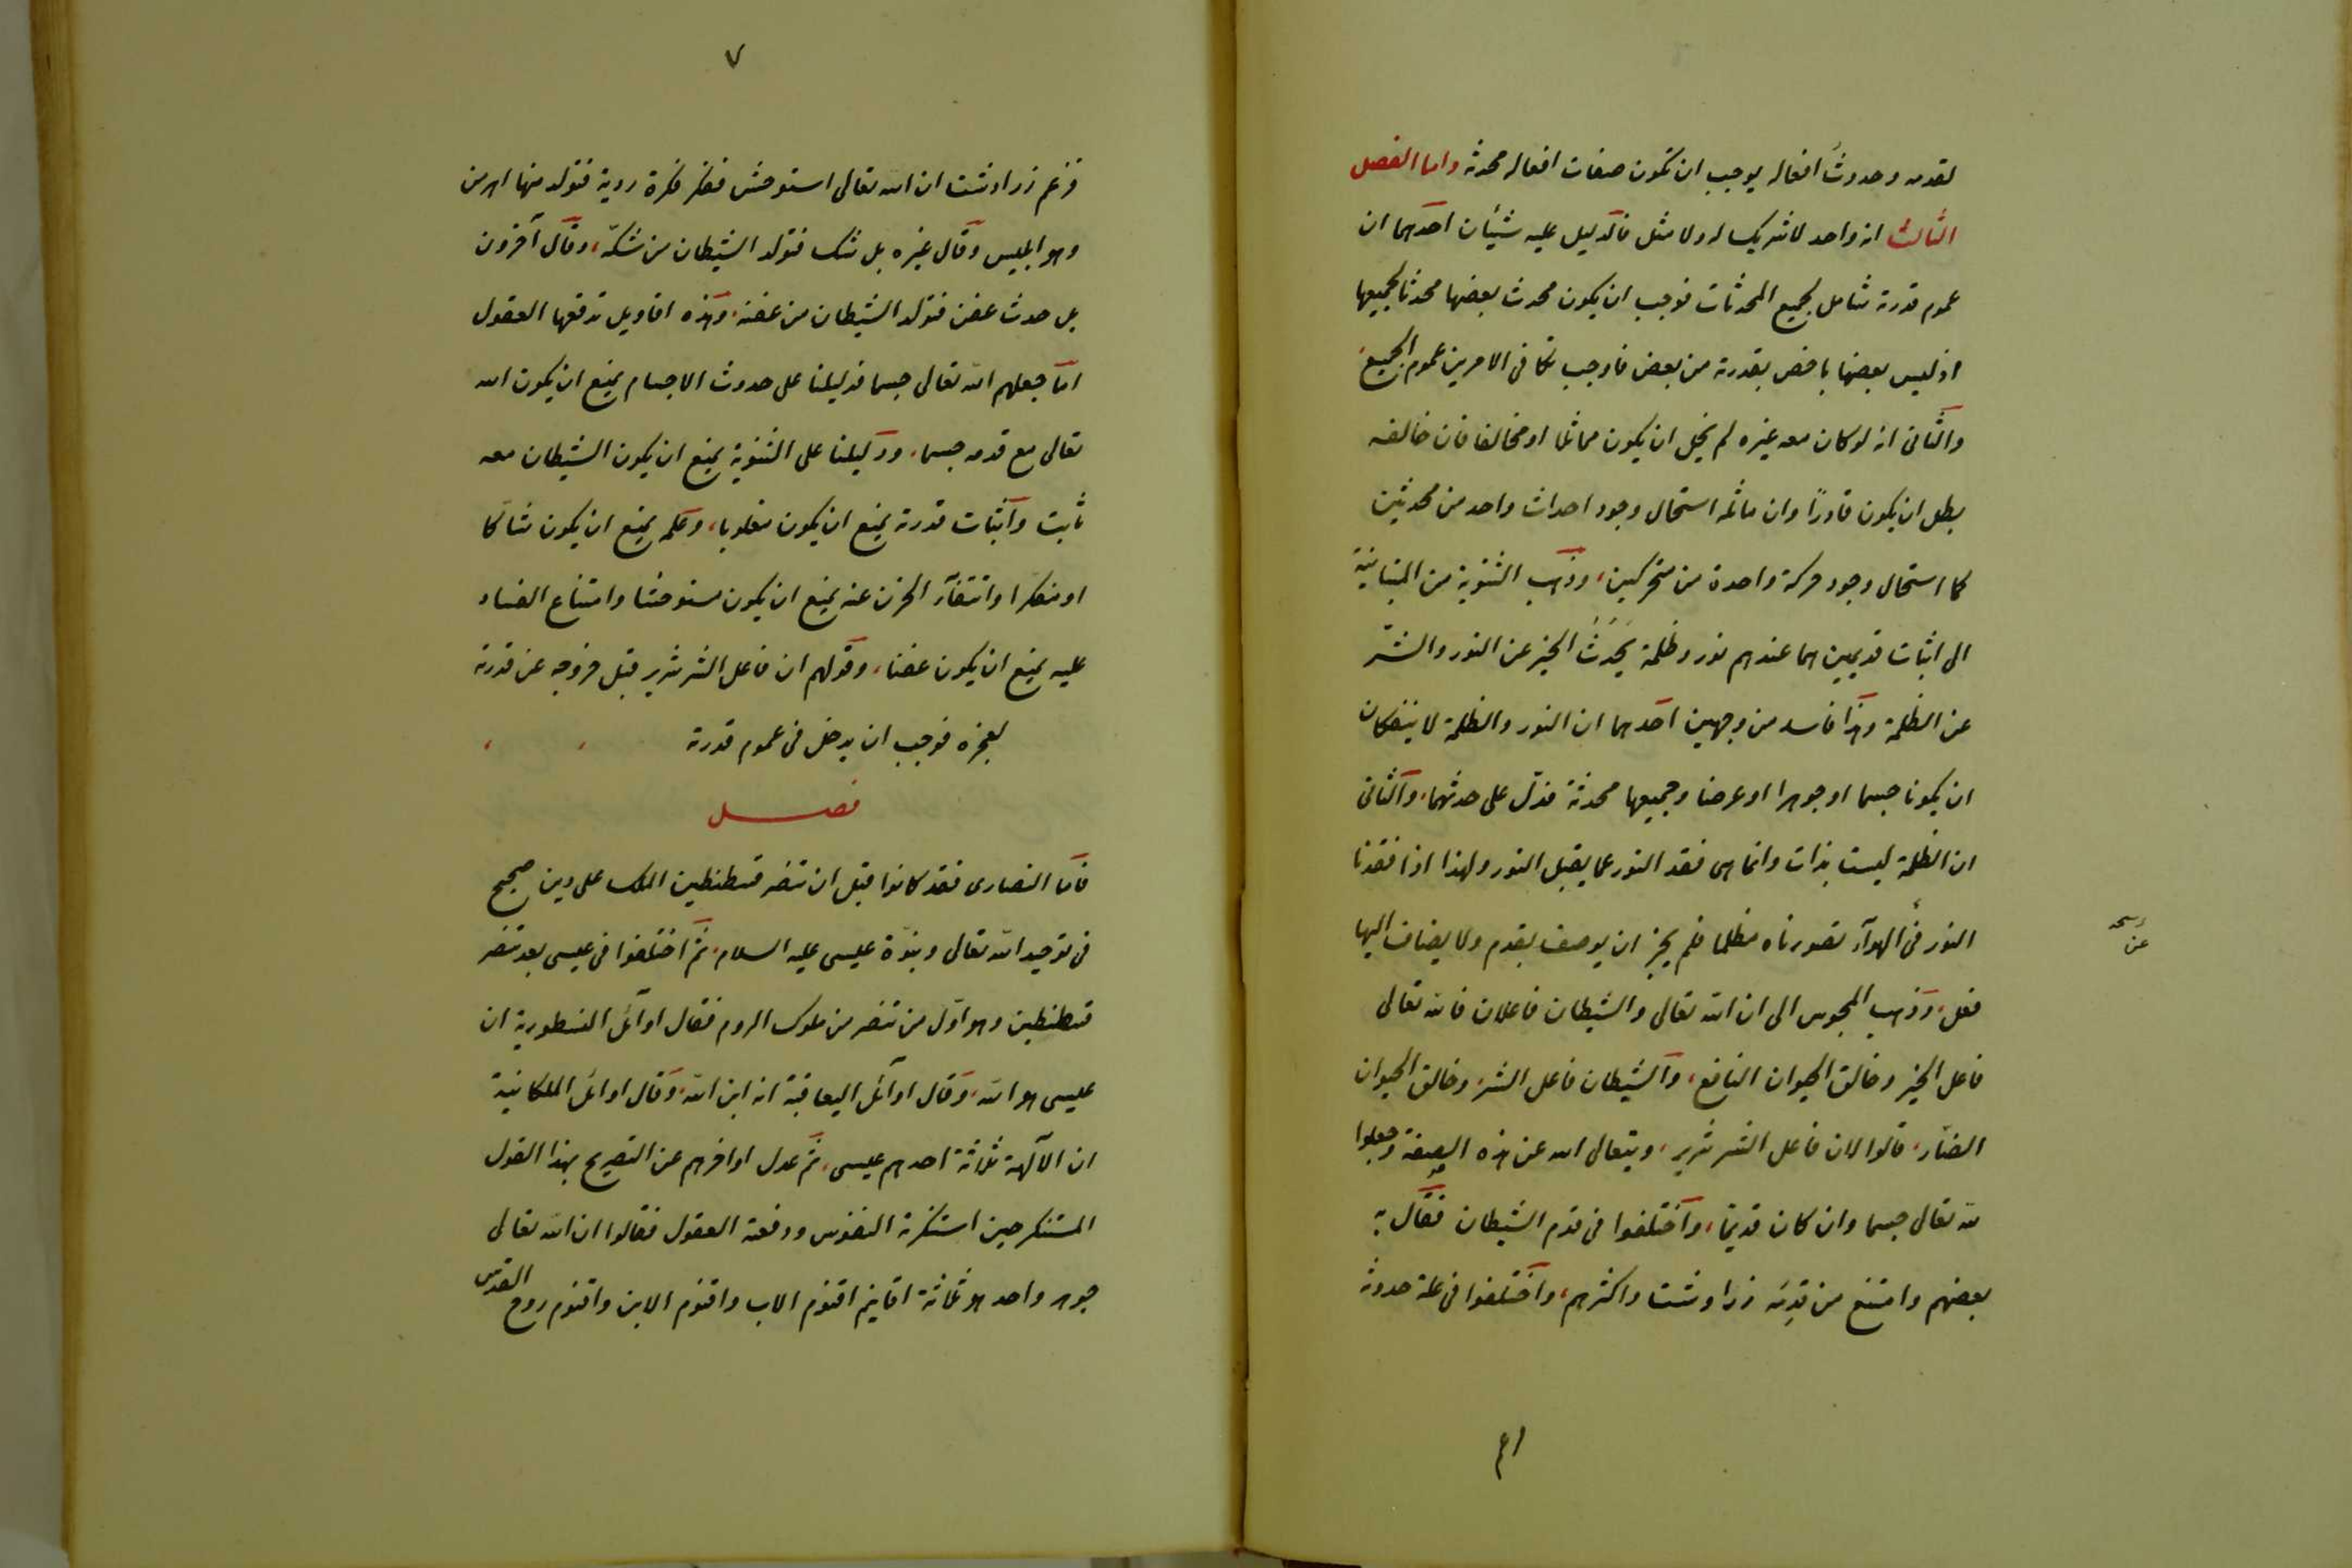 لقدمه وحدوث افعاله يوجب ان تكون صفات افعاله محدثة واما الفصل
الثالث انه واحد لا شريك له ولا مثل فالدليل عليه شيئان احدهما ان
عموم قدرته شامل لجميع المحدثات فوجب ان يكون محدث بعضها محدثا لجميعها
اذ ليس بعضها باخص بقدرته من بعض فاوجب تكافى الامرين عموم الجميع
والثانى انه لو كان معه غيره لم يخل ان يكون مماثلا او مخالفا فان خالفه
بطل ان يكون قادرًا وان ماثله استحال وجود احداث واحد من محدثين
كما استحال وجود حركة واحدة من متحركين، وذهب الثنوية من المنانية
الى اثبات قديمين هما عندهم نور وظلمة يَحْدُثُ الخير عن النور والشرّ
عن الظلمة وهذا فاسد من وجهين احدهما ان النور والظلمة لا ينفكان
ان يكونا جسما او جوهرا او عرضا وجميعها محدثة فدلّ على حدثهما، والثانى
ان الظلمة ليست بذات وانما هى فقد النور عما يقبل النور ولهذا اذا فقدنا
النور فى الهوآء تصورناه مظلما فلم يجز ان يوصف بقدم ولا يضاف اليها
نسخه
عن
فعل، وذهب المجوس الى ان الله تعالى والشيطان فاعلان فالله تعالى
فاعل الخير وخالق الحيوان النافع، والشيطان فاعل الشر، وخالق الحيوان
الضار، قالوا لان فاعل الشر شرير، ويتعالى الله عن هذه الصفة وجعلوا
لله تعالى جسما وان كان قديمًا، واختلفوا فى قدم الشيطان فقال به
بعضهم وامتنع من قدمه زرادشت واكثرهم، واختلفوا فى علة حدوثه
٧
فزعم زرادشت ان الله تعالى استوحش ففكر فكرة ردية فتولد منها اهرمن
وهو ابليس وقال غيره بل شك فتولد الشيطان من شكّه، وقال آخرون
بل حدث عفن فتولد الشيطان من عفنه، وهذه اقاويل تدفعها العقول
اما جعلهم الله تعالى جسما فدليلنا على حدوث الاجسام يمنع ان يكون الله
تعالى مع قدمه جسما، ودليلنا على الثنوية يمنع ان يكون الشيطان معه
ثابت واثبات قدرته يمنع ان يكون مغلوبا، وعلمه يمنع ان يكون شاكا
او مفكرا وانتفآء الحزن عنه يمنع ان يكون مستوحشا وامتناع الفساد
عليه يمنع ان يكون عفنا، وقولهم ان فاعل الشر شرير قبل خروجه عن قدرته
لعجزه فوجب ان يدخل فى عموم قدرته
فصل
فاما النصارى فقد كانوا قبل ان تنصر قسطنطين الملك على دين صحيح
فى توحيد الله تعالى ونبوّة عيسى عليه السلام، ثم اختلفوا فى عيسى بعد تنصر
قسطنطين وهو اوّل من تنصر من ملوك الروم فقال اوآئل النسطورية ان
عيسى هو الله، وقال اوآئل اليعاقبة انه ابن الله، وقال اوائل الملكانية
ان الآلهة ثلاثة احدهم عيسى، ثم عدل اواخرهم عن التصريح بهذا القول
المستنكر حين استنكرته النفوس ودفعته العقول فقالوا ان الله تعالى
جوهر واحد هو ثلاثة اقانيم اقنوم الاب واقنوم الابن واقنوم روح القدس